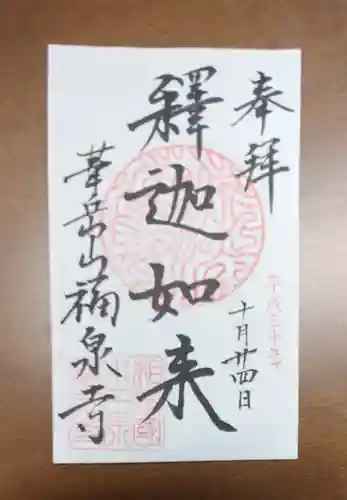 奉拝
平成三十年
十月廿四日
釋迦如来
葦岳山福泉寺